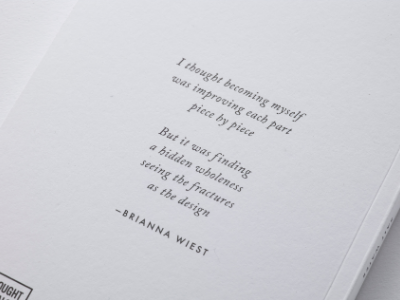 I thought becoming myself
was improving each part
piece by piece
But it was finding
a hidden wholeness
seeing the fractures
as the design
—BRIANNA WIEST